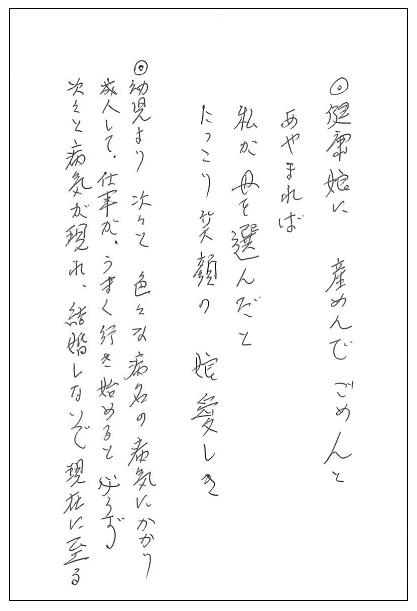 ◎健康娘に 産めんで ごめんと
あやまれば
私が母を選んだと
にっこり笑顔の 娘愛しき
◎幼児より 次々と 色々な病名の病気にかかり
成人して、仕事が、うまく行き始めると必らず
次々と病気が現れ、結婚しないで現在に至る